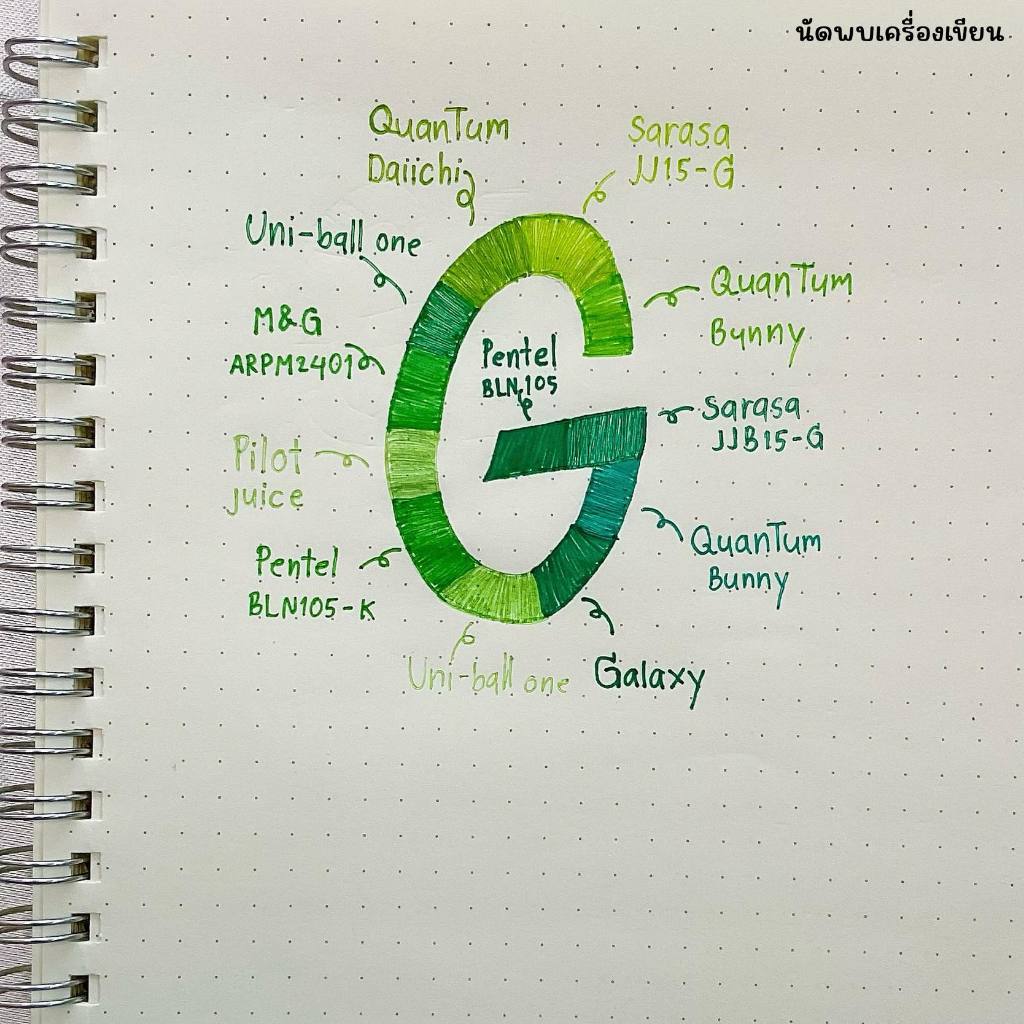 นัดพบเครื่องเขียน
QuanTum
Daiichi
Sarasa
JJ15-G
Uni-ball one
QuanTum
Bunny
M&G
ARPM2401
Pentel
BLN105
Sarasa
JJB15-G
Pilot
juice
QuanTum
Bunny
Pentel
BLN105-K
Uni-ball one
Galaxy